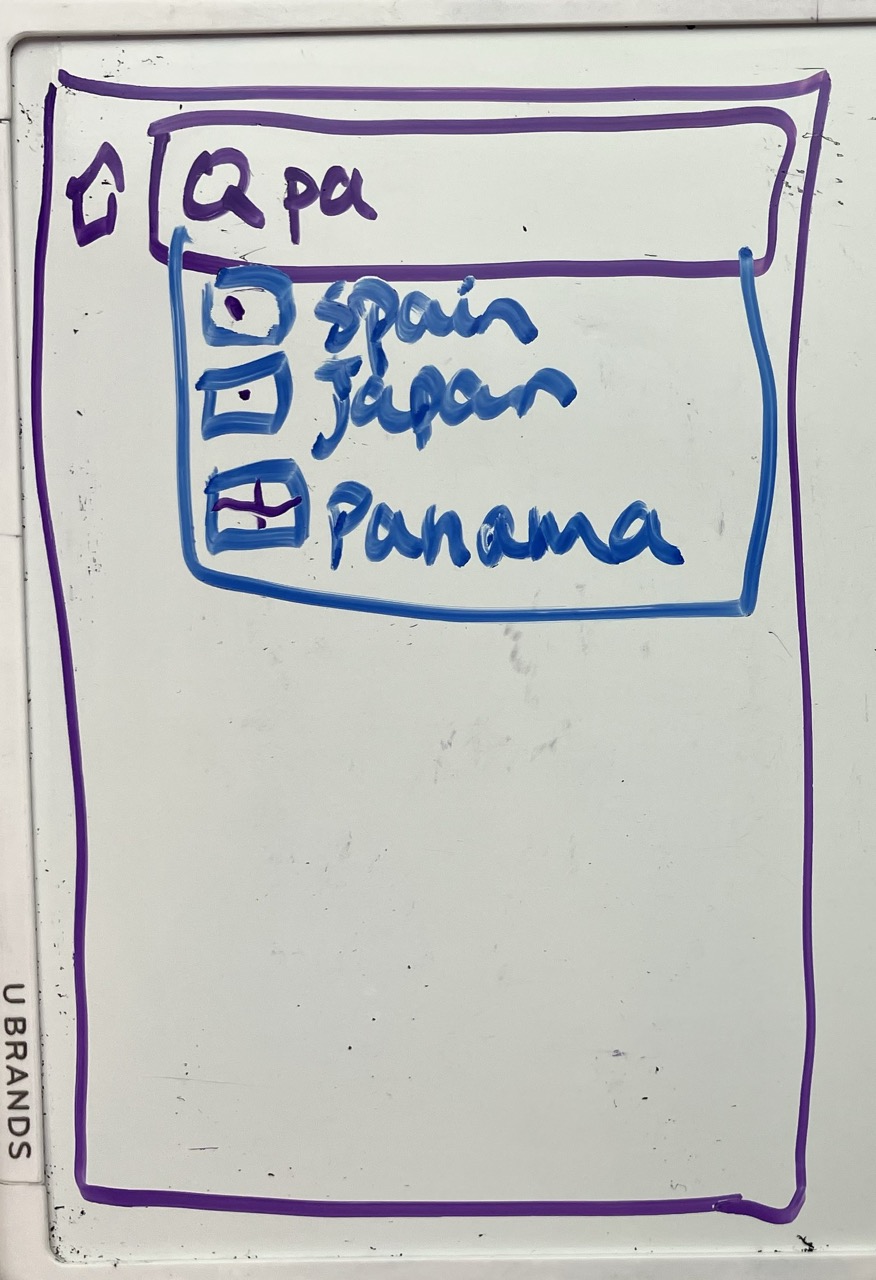 pa
Spain
Japan
Panama
U BRANDS